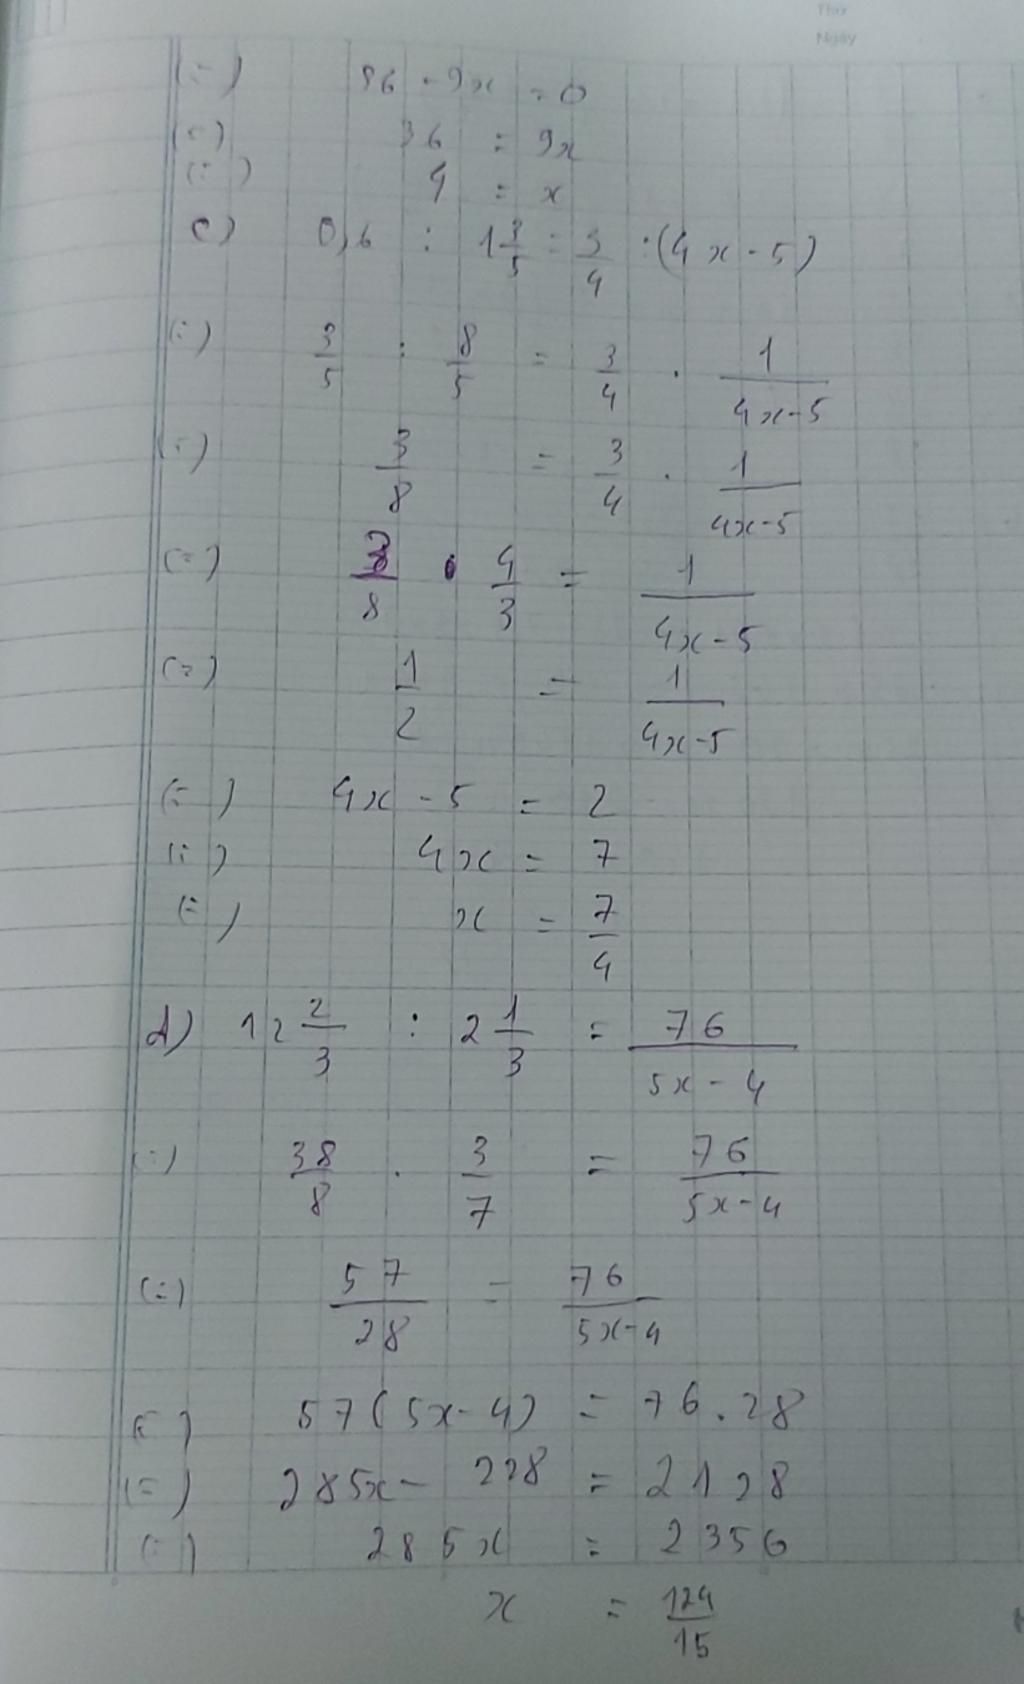 Thứ
Ngày
(=) 36 - 9x = 0
(=) 36 = 9x
(=) 4 = x
c) 0,6 : 1 3/5 = 3/4 : (4x - 5)
(=) 3/5 : 8/5 = 3/4 . 1/(4x-5)
(=) 3/8 = 3/4 . 1/(4x-5)
(=) 3/8 . 4/3 = 1/(4x-5)
(=) 1/2 = 1/(4x-5)
(=) 4x - 5 = 2
(=) 4x = 7
(=) x = 7/4
d) 12 2/3 : 2 1/3 = 76/(5x-4)
(=) 38/8 . 3/7 = 76/(5x-4)
(=) 57/28 = 76/(5x-4)
(=) 57(5x-4) = 76.28
(=) 285x - 228 = 2128
(=) 285x = 2356
x = 124/15